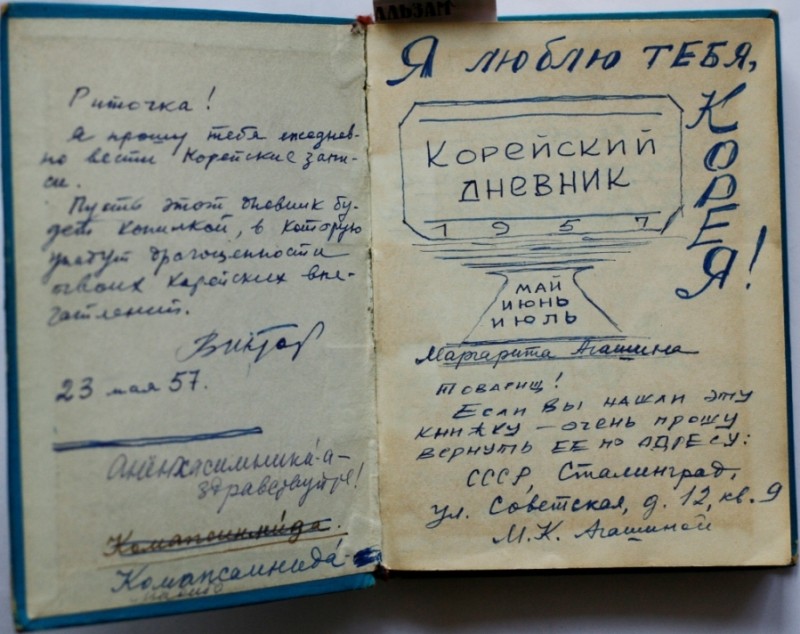 АЛЬЗАМ
Риточка!
Я прошу тебя ежеднев-
но вести Корейские запи-
си.
Пусть этот дневник бу-
дет копилкой, в которую
упадут драгоценности
твоих Корейских впе-
чатлений.
Виктор
23 мая 57.
Аненхасимника-а-
здравствуйте!
Комапсиннида.
Комапсамнида-
Я ЛЮБЛЮ ТЕБЯ,
КОРЕЯ!
КОРЕЙСКИЙ
ДНЕВНИК
1957
МАЙ
ИЮНЬ
ИЮЛЬ
Маргарита Агашина
Товарищ!
Если Вы нашли эту
книжку – очень прошу
вернуть ее по адресу:
СССР, Сталинград,
ул. Советская, д. 12, кв. 9
М.К. Агашиной